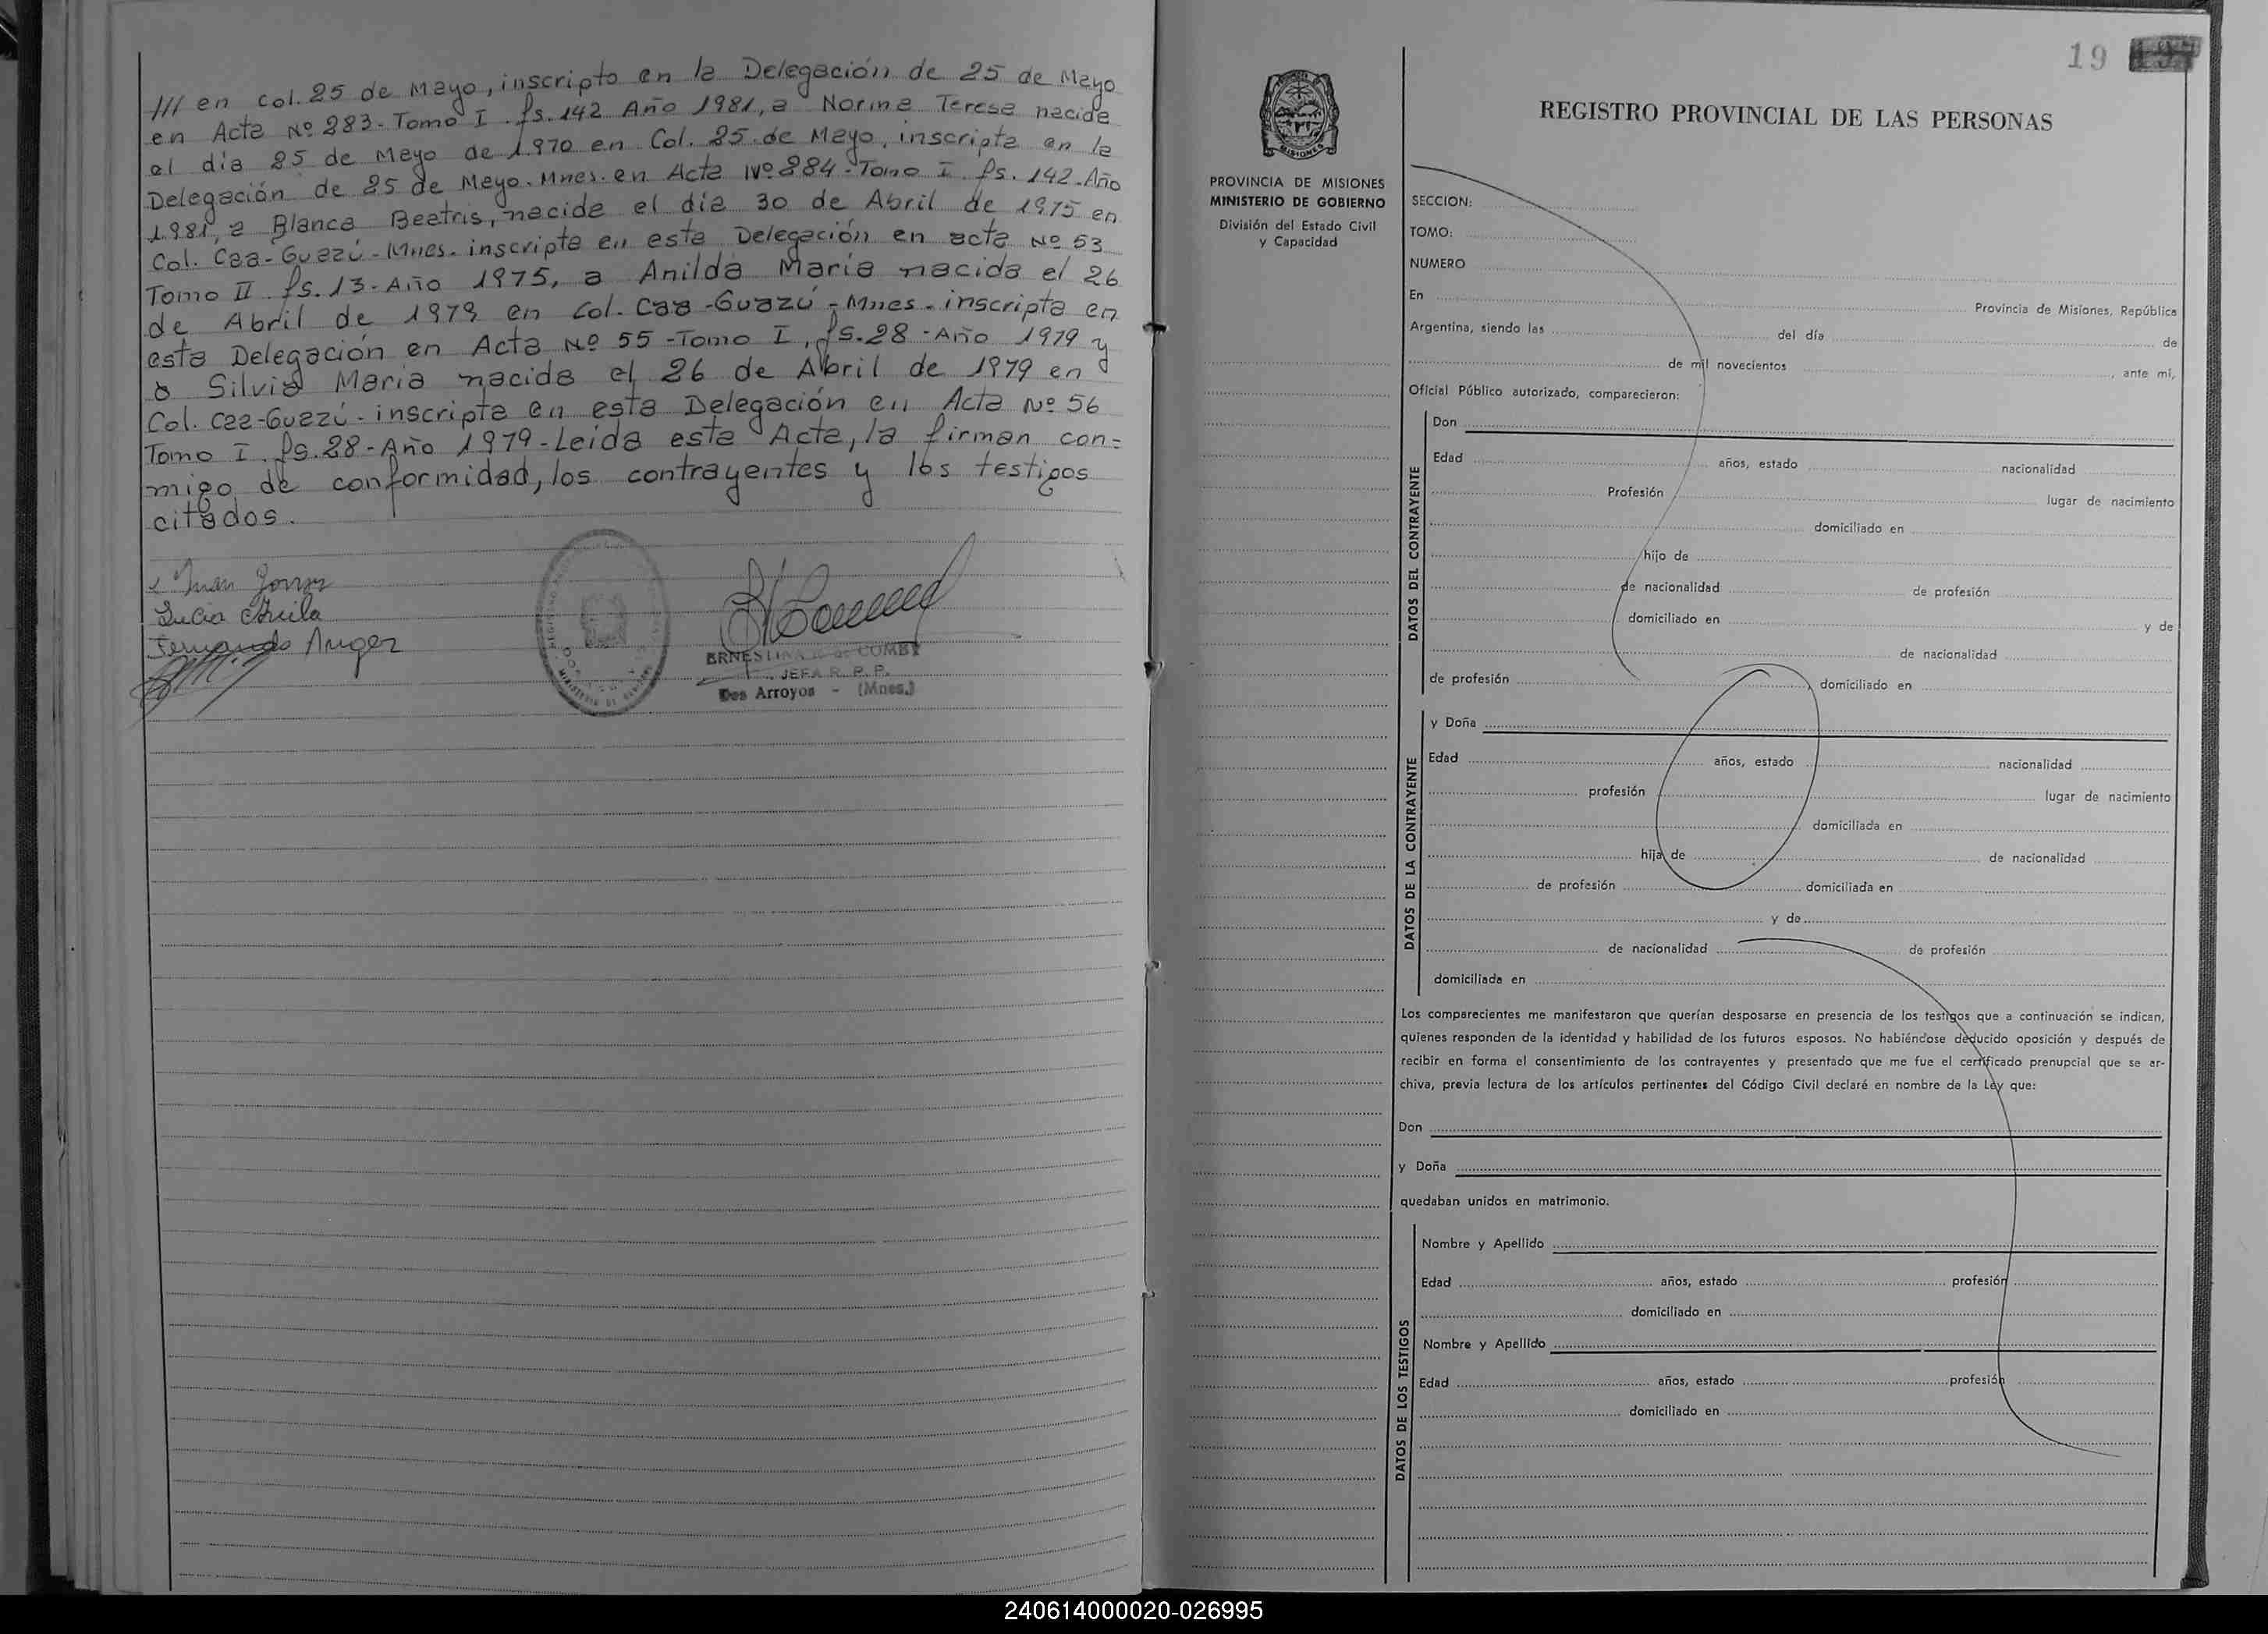 /// en col. 25 de Mayo, inscripto en la Delegación de 25 de Mayo
en Acta Nº 283- Tomo I. fs. 142 Año 1981, a Norma Teresa nacida
el día 25 de Mayo de 1.970 en Col. 25 de Mayo, inscripta en la
Delegación de 25 de Mayo. Mnes. en Acta Nº 284- Tomo I. fs. 142-Año
1.981, a Blanca Beatris, nacida el día 30 de Abril de 1975 en
Col. Caa-Guazú-Mnes. inscripta en esta Delegación en acta Nº 53
Tomo II fs. 13-Año 1975, a Anilda María nacida el 26
de Abril de 1979 en Col. Caa-Guazú-Mnes. inscripta en
esta Delegación en Acta Nº 55-Tomo I, fs. 28-Año 1979 y
a Silvia Maria nacida el 26 de Abril de 1979 en
Col. Caa-Guazú-inscripta en esta Delegación en Acta Nº 56
Tomo I. fs. 28-Año 1979-Leida esta Acta, la firman con=
migo de conformidad, los contrayentes y los testigos
citados.
Juan
Lucia
Fernando Anger
JEFA R. P. P.
Dos Arroyos - (Mnes.)
19
REGISTRO PROVINCIAL DE LAS PERSONAS
MISIONES
PROVINCIA DE MISIONES
MINISTERIO DE GOBIERNO
División del Estado Civil
y Capacidad
SECCION:
TOMO:
NUMERO
En Provincia de Misiones, República
Argentina, siendo las del día de
de mil novecientos , ante mí,
Oficial Público autorizado, comparecieron:
DATOS DEL CONTRAYENTE
Don
Edad años, estado nacionalidad
Profesión lugar de nacimiento
domiciliado en
hijo de
de nacionalidad de profesión
domiciliado en y de
de nacionalidad
de profesión , domiciliado en
DATOS DE LA CONTRAYENTE
y Doña
Edad años, estado nacionalidad
profesión lugar de nacimiento
domiciliada en
hija de de nacionalidad
de profesión domiciliada en
y de
de nacionalidad de profesión
domiciliada en
Los comparecientes me manifestaron que querían desposarse en presencia de los testigos que a continuación se indican,
quienes responden de la identidad y habilidad de los futuros esposos. No habiéndose deducido oposición y después de
recibir en forma el consentimiento de los contrayentes y presentado que me fue el certificado prenupcial que se ar-
chiva, previa lectura de los artículos pertinentes del Código Civil declaré en nombre de la Ley que:
Don
y Doña
quedaban unidos en matrimonio.
DATOS DE LOS TESTIGOS
Nombre y Apellido
Edad años, estado profesión
domiciliado en
Nombre y Apellido
Edad años, estado profesión
domiciliado en
240614000020-026995